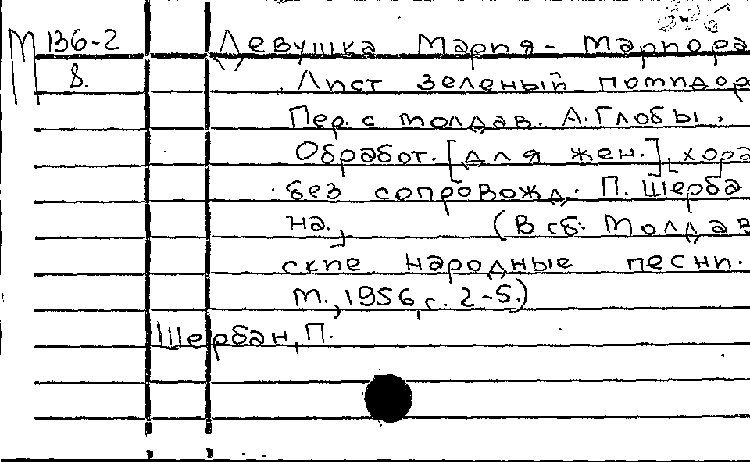 М 136-2
8.
Девушка Мария - Мариора
Лист зеленый помидор
Пер. с молдав. А. Глобы.
Обработ. [для жен.] хора
без сопровожд. П. Щерба
на. (В сб: Молдав
ские народные песни.
М., 1956, с. 2-5.)
Щербан, П.